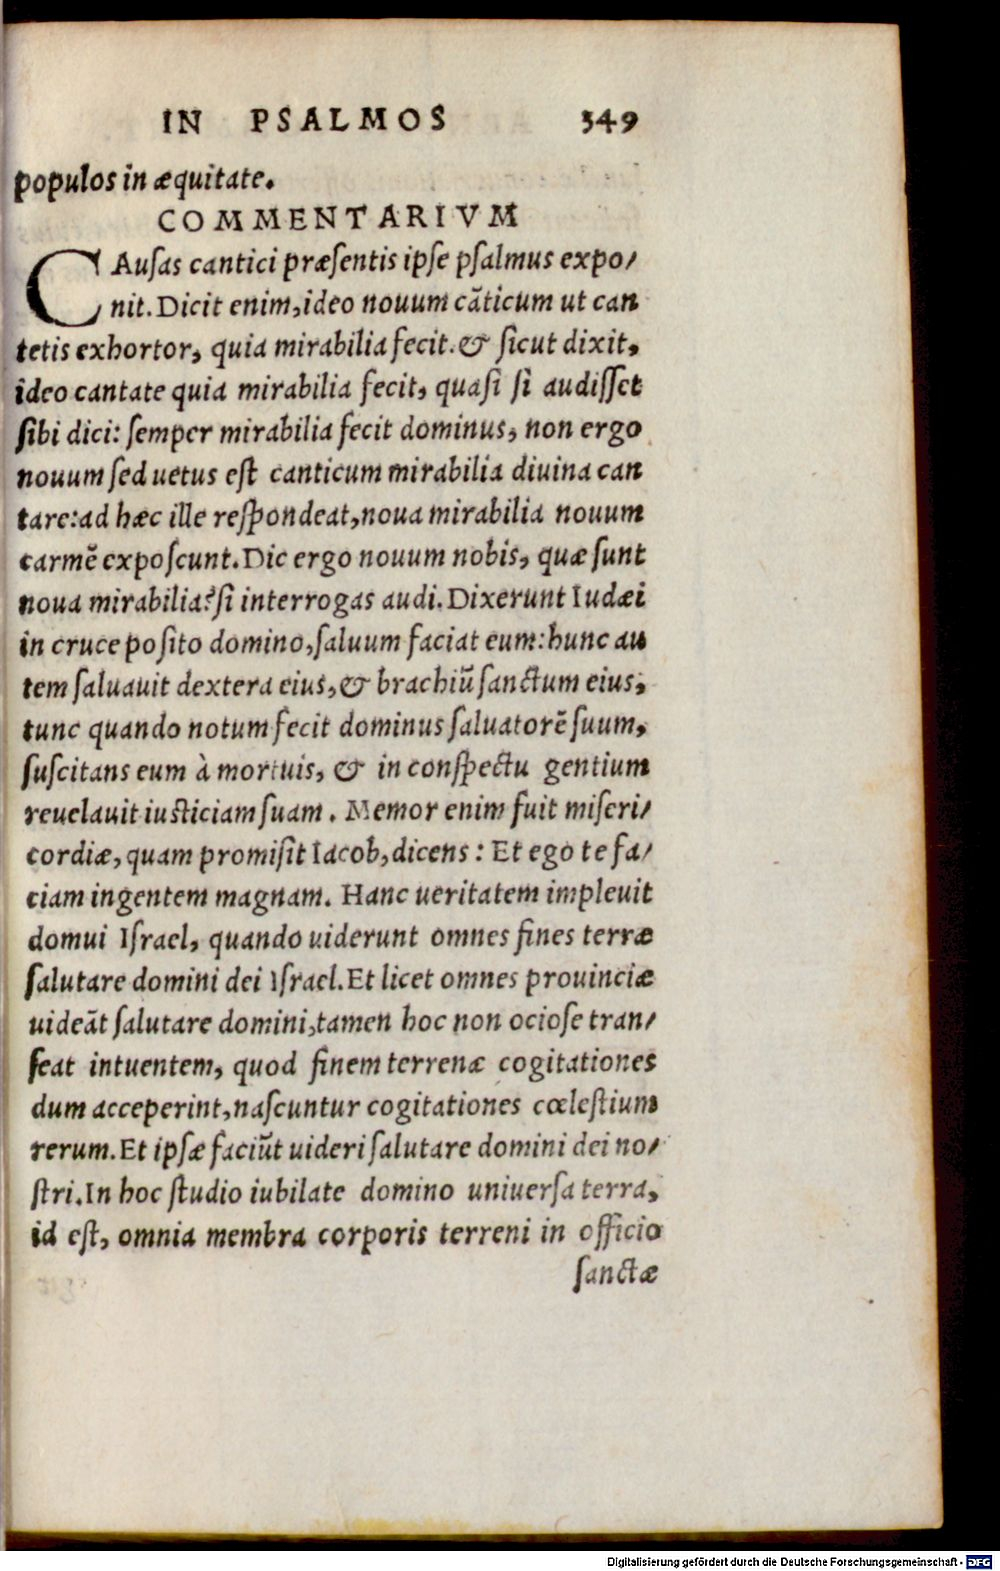 IN PSALMOS 349
populos in æquitate.
COMMENTARIVM
CAusas cantici præsentis ipse psalmus expo/
nit. Dicit enim, ideo nouum cãticum ut can
tetis exhortor, quia mirabilia fecit. & sicut dixit,
ideo cantate quia mirabilia fecit, quasi si audisset
sibi dici: semper mirabilia fecit dominus, non ergo
nouum sed uetus est canticum mirabilia diuina can
tare: ad hæc ille respondeat, noua mirabilia nouum
carmẽ exposcunt. Dic ergo nouum nobis, quæ sunt
noua mirabilia? si interrogas audi. Dixerunt Iudæi
in cruce posito domino, saluum faciat eum: hunc au
tem saluauit dextera eius, & brachiũ sanctum eius,
tunc quando notum fecit dominus saluatorẽ suum,
suscitans eum à mortuis, & in conspectu gentium
reuelauit iusticiam suam. Memor enim fuit miseri/
cordiæ, quam promisit Iacob, dicens: Et ego te fa/
ciam in gentem magnam. Hanc ueritatem impleuit
domui Israel, quando uiderunt omnes fines terræ
salutare domini dei Israel. Et licet omnes prouinciæ
uideãt salutare domini, tamen hoc non ociose tran/
seat intuentem, quod finem terrenæ cogitationes
dum acceperint, nascuntur cogitationes cœlestium
rerum. Et ipsæ faciũt uideri salutare domini dei no/
stri. In hoc studio iubilate domino uniuersa terra,
id est, omnia membra corporis terreni in officio
sanctæ
Digitalisierung gefördert durch die Deutsche Forschungsgemeinschaft - DFG